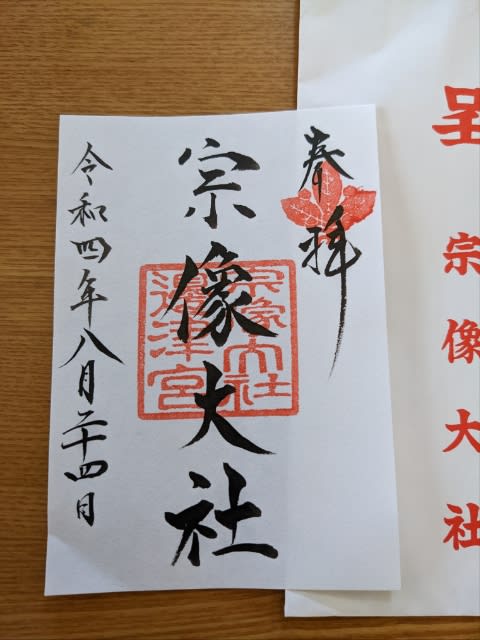 呈
宗像大社
奉拝
宗像大社
宗像大社
邊津宮
令和四年八月二十四日